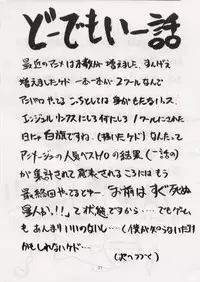 どーでもいー話
最近のアニメは本数が増えました。まんがも
増えましたケド 一本一本が2クールなんで
アニパロやってる こっちとしては身がもたないっス。
エンジェルリンクスにしろ何にしろ1クールにこされた
日にゃ白旗ですね。(描いたケド)なんたって
アニメージュの人気ベスト10の結果(一話の)
が集計されて発表されるころにはもう
最終回やってるとゆー お前はすぐ死ぬ
星人か!!って状態ですから……でもゲーム
もあんまりいいのないし…(僕が知らないだけ
かもしれないケド…
(次へつづく)